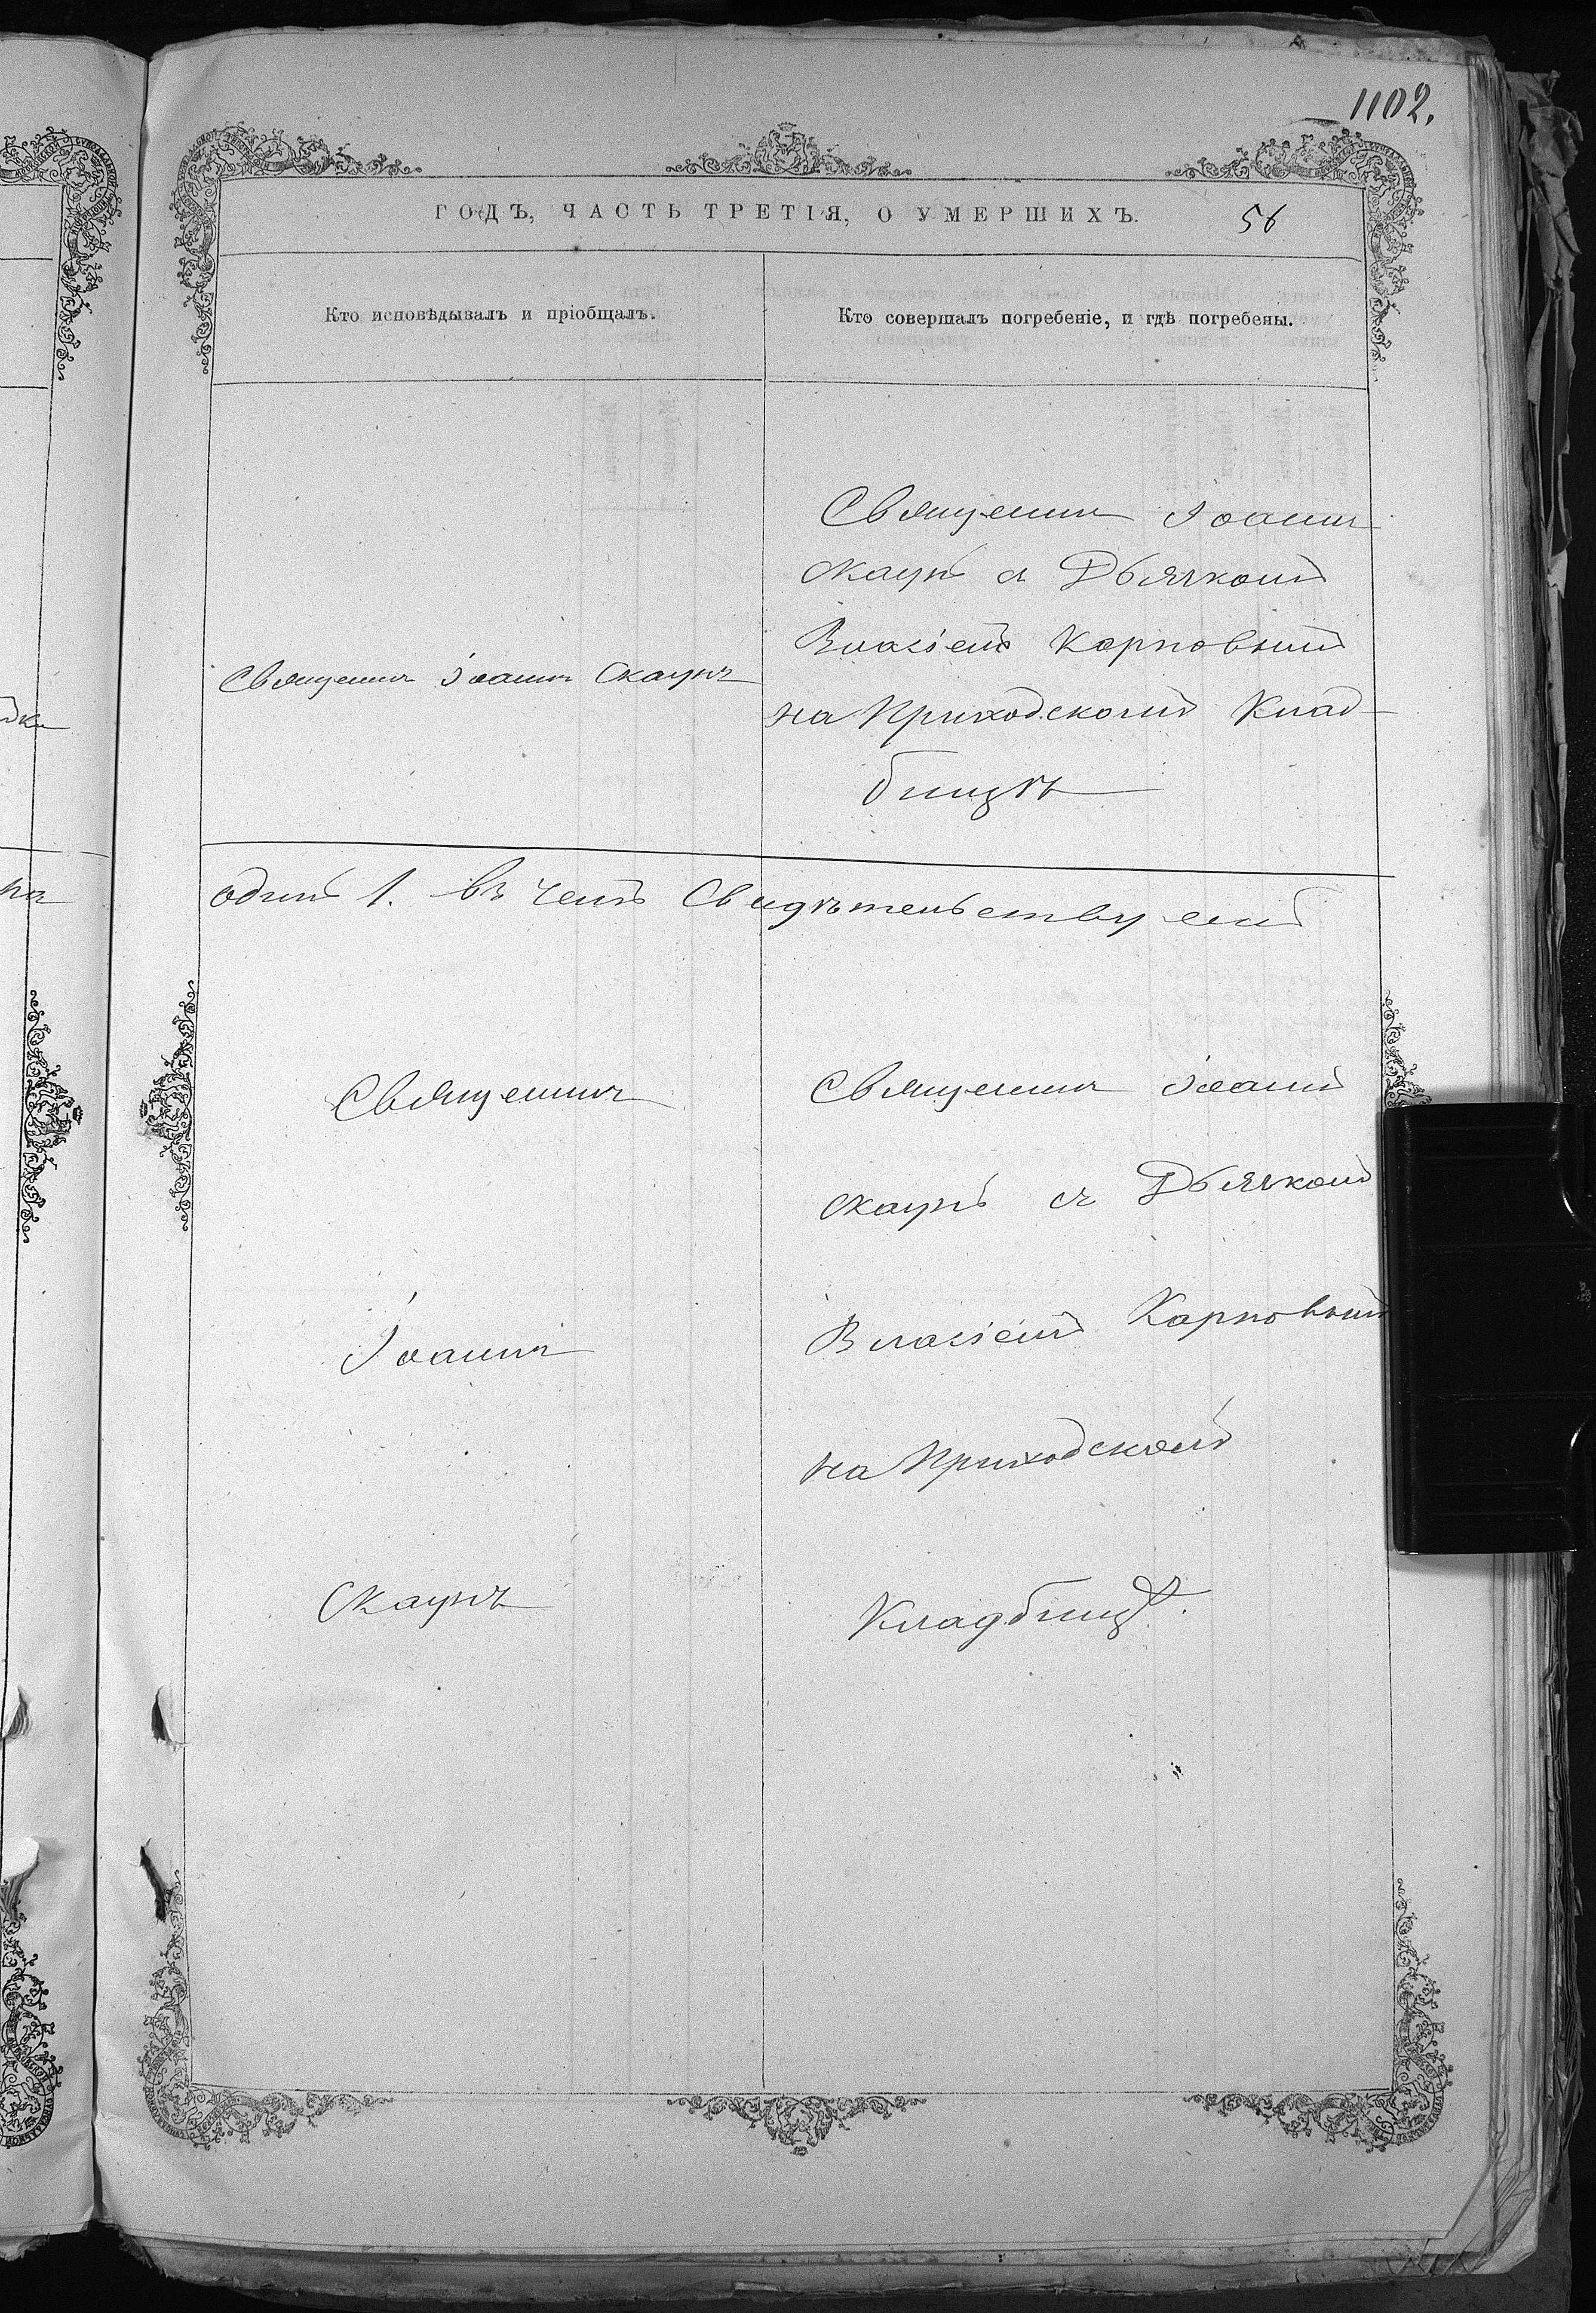 1102.
ГОДЪ, ЧАСТЬ ТРЕТІЯ, О УМЕРШИХЪ.
56
Кто исповѣдывалъ и пріобщалъ.
Кто совершалъ погребеніе, и гдѣ погребены.
Священникъ Іоаннъ Скаупъ
Священникъ Іоаннъ
Скаупъ съ Дьячкомъ
Власіемъ Карповымъ
на Приходскомъ Клад-
бищѣ
одинъ 1. въ чемъ Свидѣтельствуемъ
Священникъ
Іоаннъ
Скаупъ
Священникъ Іоаннъ
Скаупъ съ Дьячкомъ
Власіемъ Карповымъ
на Приходскомъ
Кладбищѣ.